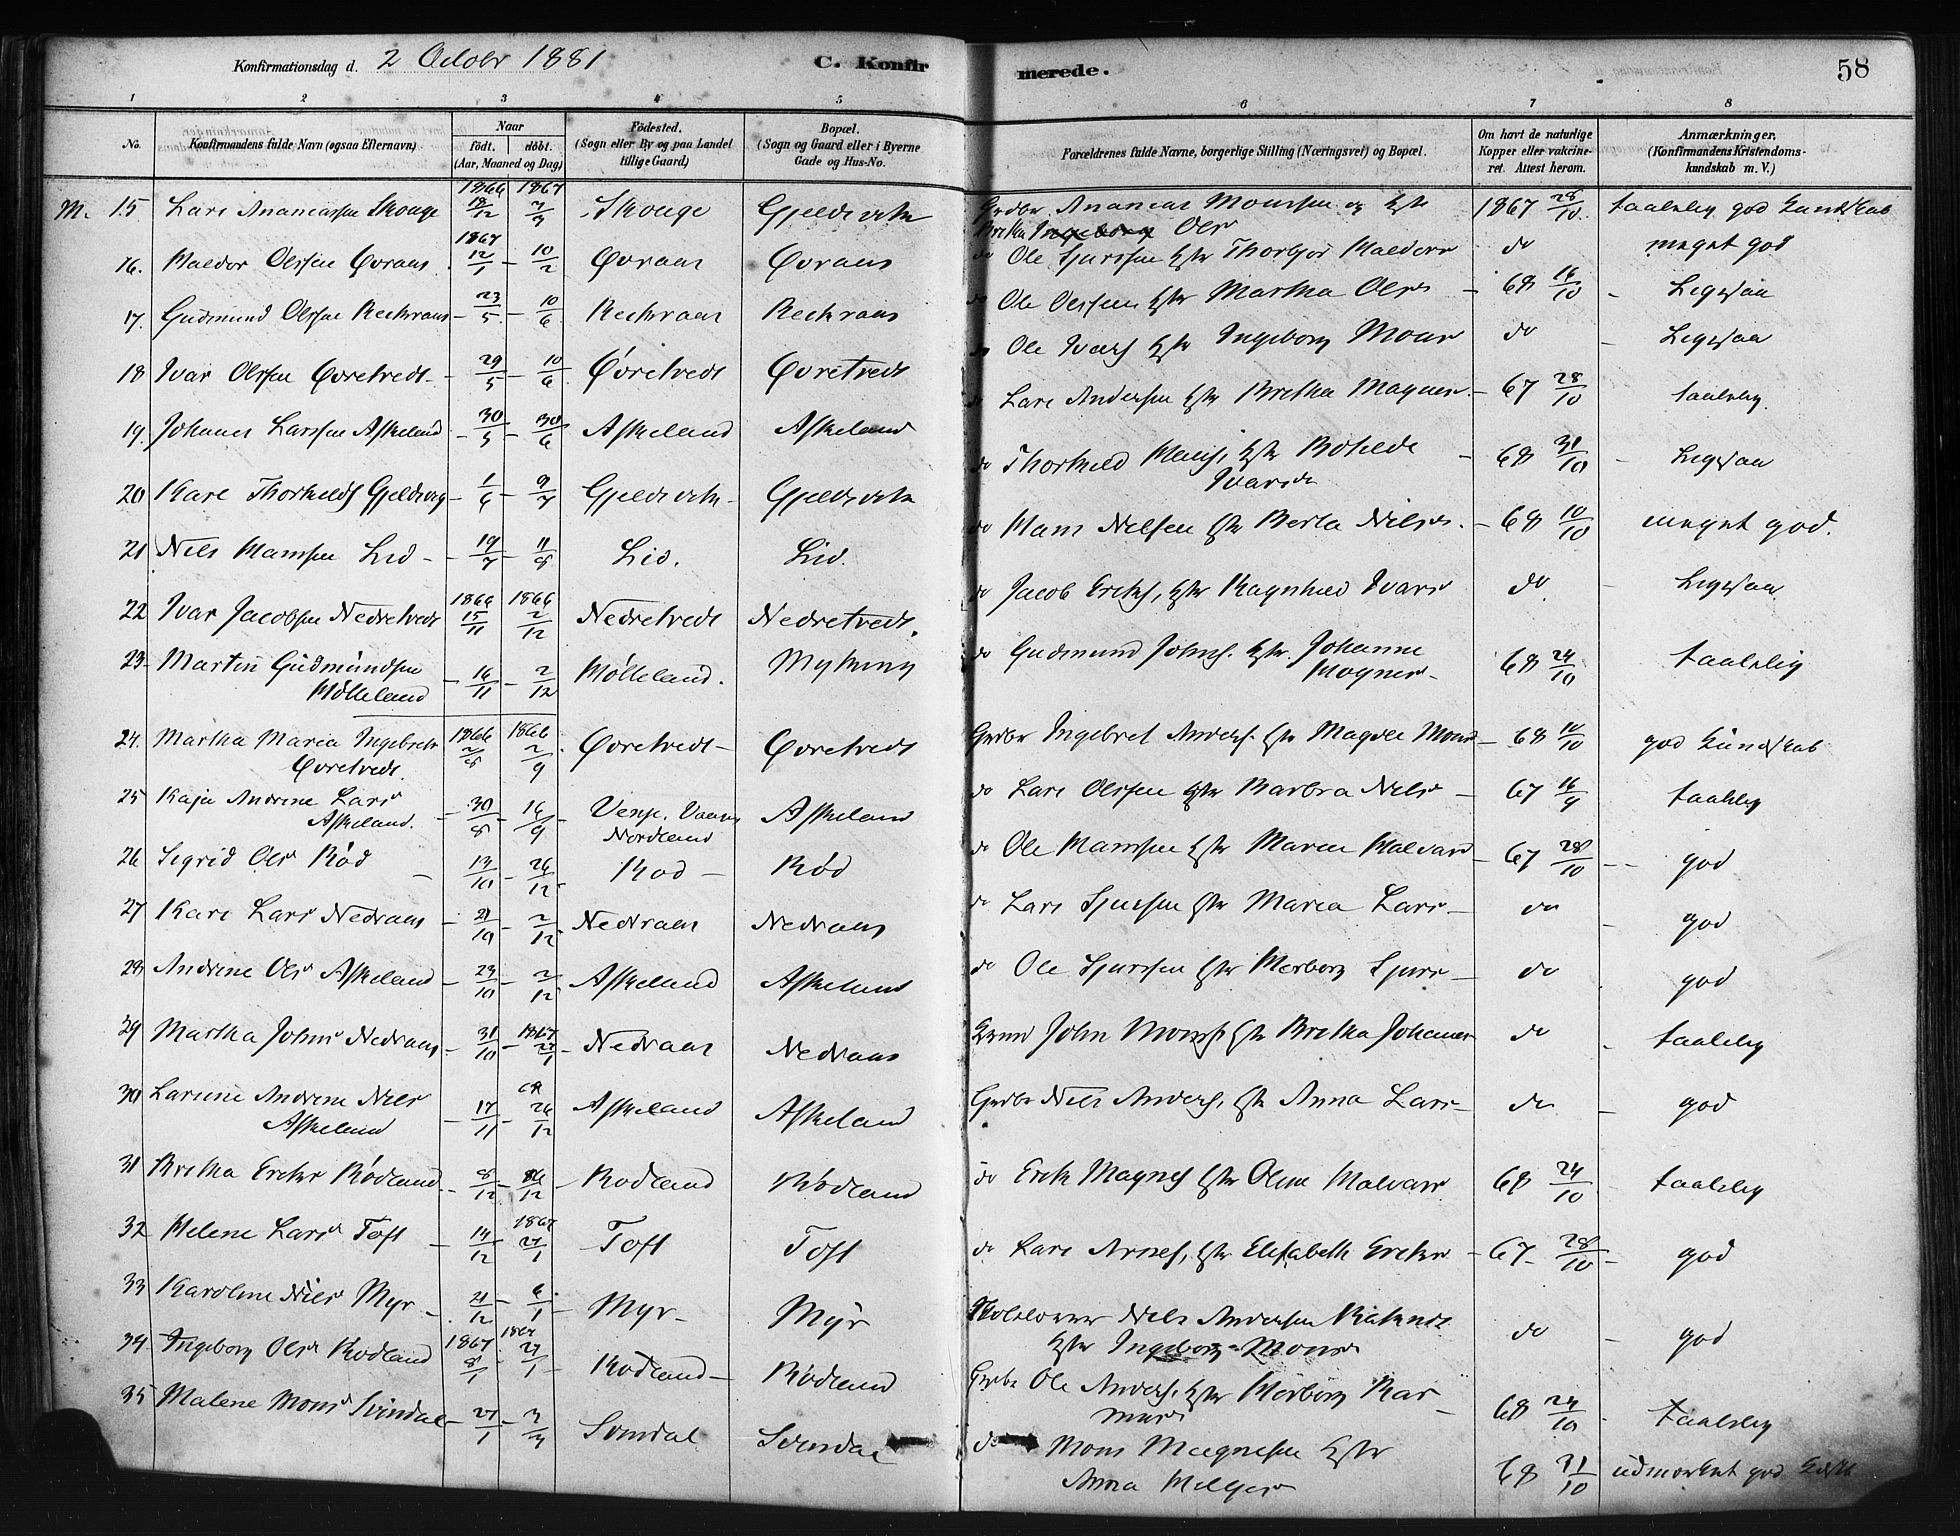 Konfirmationsdag d. 2 Octobr 1881 C. Konfirmerede. 58
1 2 3 4 5 6 7 8
No. Konfirmandens fulde Navn (ogsaa Efternavn) Naar født. døbt. (Aar, Maaned og Dag) Fødested. (Sogn eller By og paa Landet tillige Gaard) Bopæl. (Sogn og Gaard eller i Byerne Gade og Hus-No. Forældrenes fulde Navne, borgerlige Stilling (Næringsvei) og Bopæl. Om havt de naturlige Kopper eller vakcineret. Attest herom. Anmærkninger. (Konfirmandens Kristendomskundskab m. V.)
M. 15 Lars Ananiassen Skouge 1866 1867 Skouge Gjeldsvik Grdbr Ananias Monssen og Hstr Brethe Ols 1867 28/10 taalelig god Kundskab
16. Haldor Olssen Øvraas 1867 12/1 - 10/2 Øvraas Øvraas do Ole Sjurssen Hstr Thorbjør Haldors do meget god
17. Gudmund Olssen 23/5 - 10/6 do Ole Olssen Hstr Martha Ols - 68 16/10 - Ligesaa
18 Ivar Olssen Øvretvedt - 29/5 - 10/6 Øvretvedt Øvretvedt do Ole Ivars Hstr Ingeborg Mons do - Ligesaa
19. Johanes Larssen Askeland - 30/5 - 30/6 Askeland Askeland do Lars Andersen Hstr Bretha Magnes - 67 28/10 taalelig
20 Kare Thorkelds Gjeldsvig - 1/6 - 9/7 Gjeldsvik - Gjeldsvik do Thorkeld Hstr Bothilde Ivarsdr - 68 31/10 - Ligesaa
21 Nils Hanssen Lid - 19/7 - 11/8 Lid. Lid. do Hans Nilsen Hstr Berta Nilsdr. - 68 10/10 meget god.
22 Ivar Jacobsen Nedretvedt 1866 15/11 1866 2/12 Nedretvedt Nedretvedt. do Jacob Eriks, Hstr Ragnhild Ivars do - Ligesaa
23 Martin Gudmundsen Mølleland - 16/11 - 2/12 Mølleland. Myking do Gudmund Johns. Hstr. Johanne Magnes - 68 24/10 taalelig
24. Martha Maria Ingebrets Øvretvedt. 1866 2/8 1866 2/9 Øvretvedt - Øvretvedt Grdbr Ingebret Anders. Hstr Magdele Mons - 68 10/10 god Kundskab
25 Kaja Andrine Lars Askeland. - 30/8 - 16/9 - Nordland Askeland do Lars Olssen Hstr Barbra Nils - 67 16/9 taalelig
26 Sigrid Ols Rød - 13/10 - 26/12 - Rød - Rød do Ole Hanssen Hstr Maren Halvard - 67 28/10 - god
27 Kari Lars Nedraas - 21/10 - 2/12 Nedraas Nedraas do Lars Sjursen Hstr Maria Lars - do - god
28 Andrine Ols Askeland - 23/10 - 2/12 Askeland Askeland do Ole Sjurssen Hstr Herborg Sjurs - do god
29 Martha Johns Nedraas - 31/10 - 1867 27/1 - Nedraas Nedraas John Mons Hstr Bretha Johannes do - taalelig
30 Larsine Andrine Nils Askeland - 17/11 - 26/12 Askeland Askeland Grdbr Nils Anders, Hstr Anna Lars - do - god
31 Bretha Eriks Rødland - 8/12 - 26/12 - Rødland Rødland do Erik Magnes Hstr Oline Halvars 68 24/10 - taalelig
32 Helene Lars Toft - 14/12 1867 27/1 - Toft Toft do Lars Arnes, Hstr Elisabeth Eriks - 67 - 28/10 - god
33 Karoline Nils Myr - 21/12 - 6/1 - Myr - Myr Nils Andersen Hstr Ingeborg Mons do - god
34. Ingeborg Ols Rødland 1867 8/1 1867 27/1 - Rødland - Rødland Grdbr Ole Anders. Hstr Herborg Rasmus - 68 24/10 - taalelig
35 Malene Mons Svindal - 27/1 - 3/3 Svindal Svindal do Mons Magnesen Hstr Anna Helges 68 31/10 udmærket god Kdsk